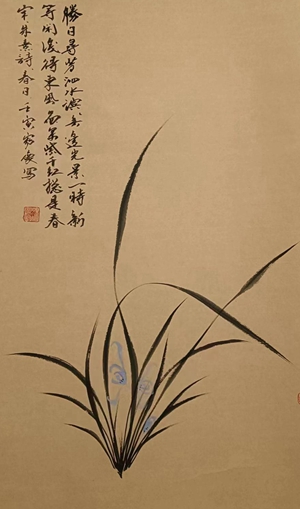 勝日尋芳泗水濱無邊光景一時新
等閒識得東風面萬紫千紅總是春
宋朱熹詩春日壬寅寫